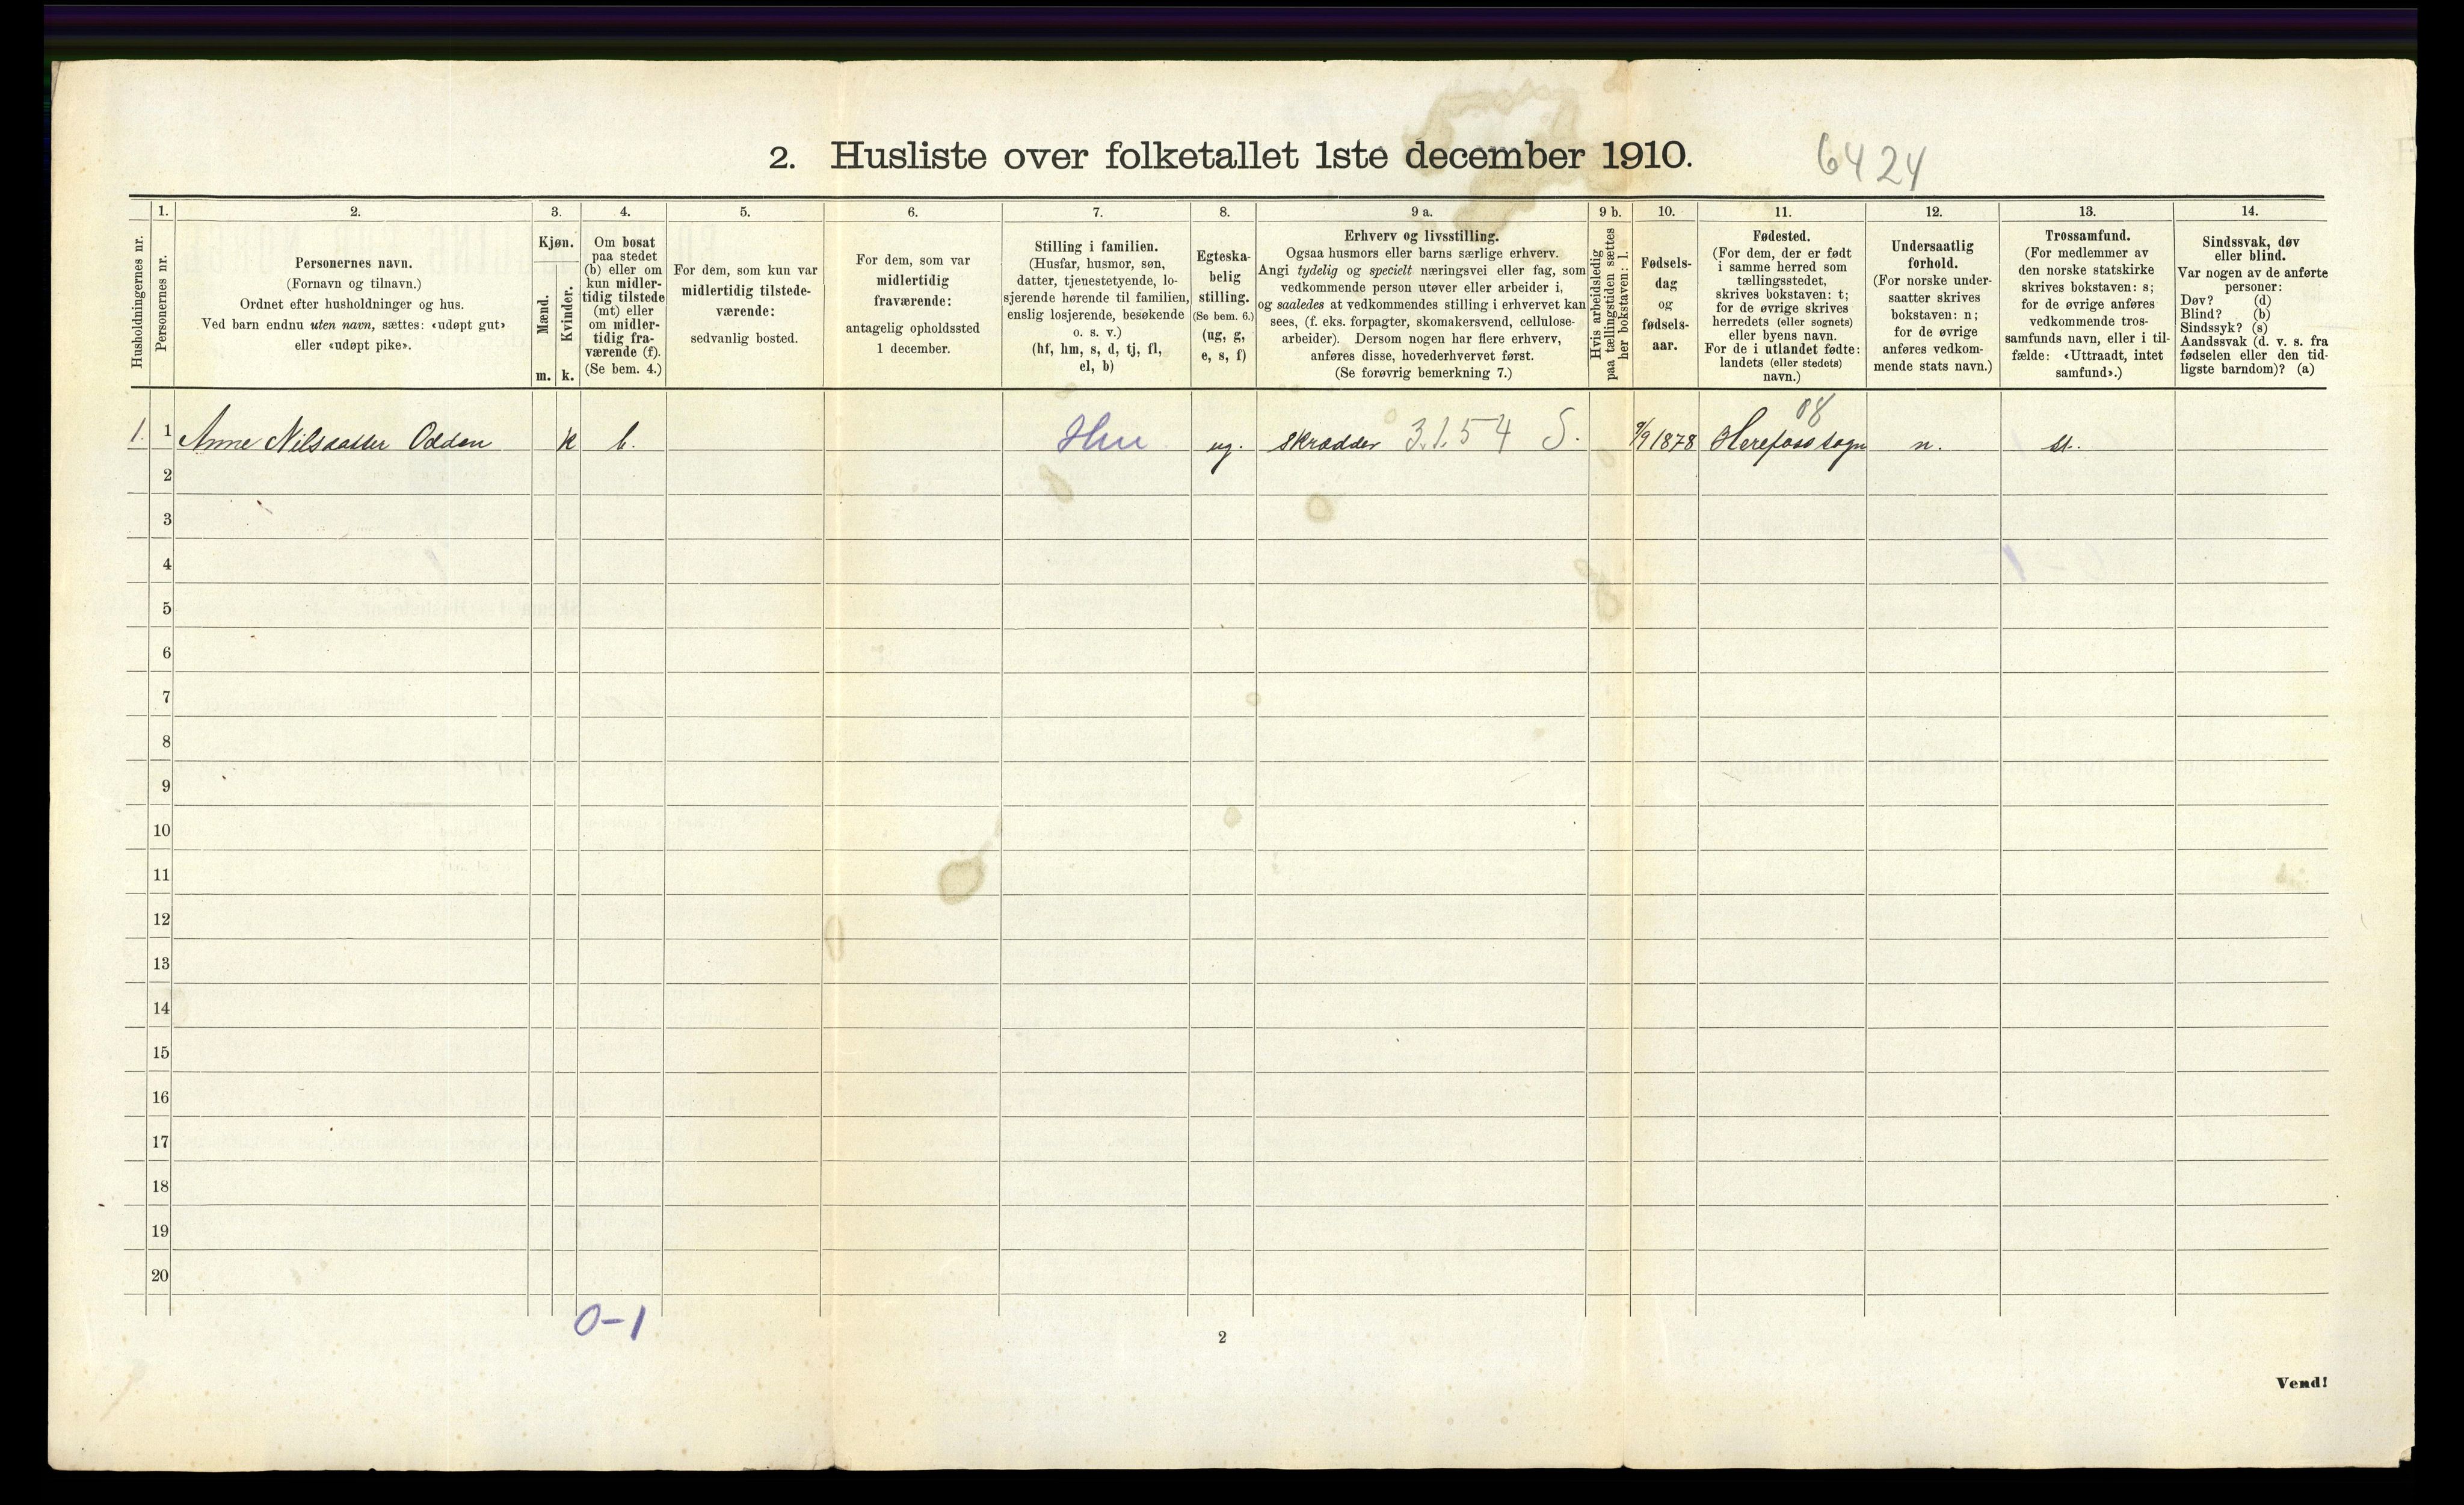 2. Husliste over folketallet 1ste december 1910.
6424
1.
2.
3.
4.
5.
6.
7.
8.
9 a.
9 b.
10.
11.
12.
13.
14.
Husholdningernes nr.
Personernes nr.
Personernes navn.
(Fornavn og tilnavn.)
Ordnet efter husholdninger og hus.
Ved barn endnu uten navn, sættes: «udøpt gut»
eller «udøpt pike».
Kjøn.
Mænd.
Kvinder.
m.
k.
Om bosat
paa stedet
(b) eller om
kun midler-
tidig tilstede
(mt) eller
om midler-
tidig fra-
værende (f).
(Se bem. 4.)
For dem, som kun var
midlertidig tilstede-
værende:
sedvanlig bosted.
For dem, som var
midlertidig
fraværende:
antagelig opholdssted
1 december.
Stilling i familien.
(Husfar, husmor, søn,
datter, tjenestetyende, lo-
sjerende hørende til familien,
enslig losjerende, besøkende
o. s. v.)
(hf, hm, s, d, tj, fl,
el, b)
Egteska-
belig
stilling.
(Se bem. 6.)
(ug, g,
e, s, f)
Erhverv og livsstilling.
Ogsaa husmors eller barns særlige erhverv.
Angi tydelig og specielt næringsvei eller fag, som
vedkommende person utøver eller arbeider i,
og saaledes at vedkommendes stilling i erhvervet kan
sees, (f. eks. forpagter, skomakersvend, cellulose-
arbeider). Dersom nogen har flere erhverv,
anføres disse, hovederhvervet først.
(Se forøvrig bemerkning 7.)
Hvis arbeidsledig
paa tællingstiden sættes
her bokstaven: l.
Fødsels-
dag
og
fødsels-
aar.
Fødested.
(For dem, der er født
i samme herred som
tællingsstedet,
skrives bokstaven: t;
for de øvrige skrives
herredets (eller sognets)
eller byens navn.
For de i utlandet fødte:
landets (eller stedets)
navn.)
Undersaatlig
forhold.
(For norske under-
saatter skrives
bokstaven: n;
for de øvrige
anføres vedkom-
mende stats navn.)
Trossamfund.
(For medlemmer av
den norske statskirke
skrives bokstaven: s;
for de øvrige anføres
vedkommende tros-
samfunds navn, eller i til-
fælde: «Uttraadt, intet
samfund».)
Sindssvak, døv
eller blind.
Var nogen av de anførte
personer:
Døv? (d)
Blind? (b)
Sindssyk? (s)
Aandssvak (d. v. s. fra
fødselen eller den tid-
ligste barndom)? (a)
08
1. 1 Anne Nilsdatter Odden k b. ug. skrædder 3.1.54 S. 9/9 1878 Herefoss sogn n. st.
2
3
4
5
6
7
8
9
10
11
12
13
14
15
16
17
18
19
20
0-1
2
Vend!